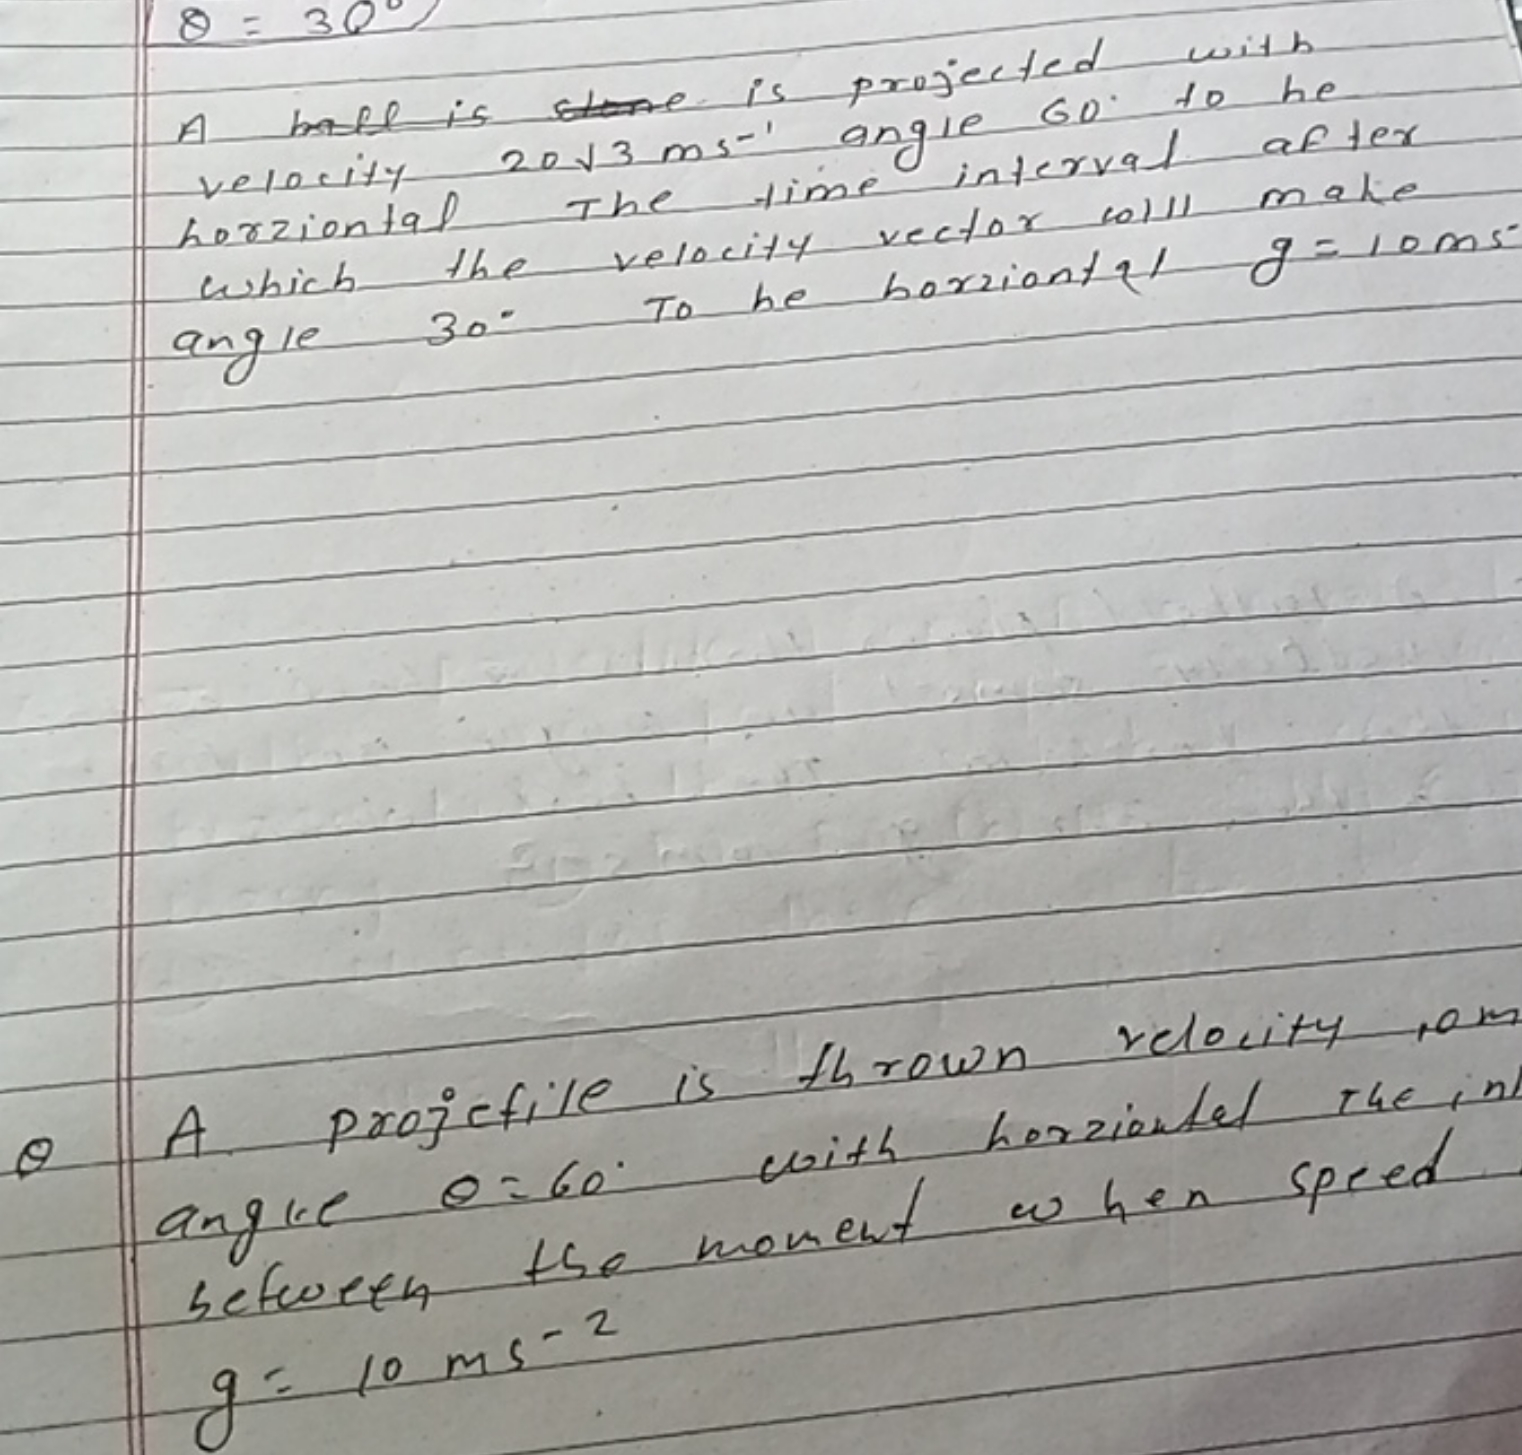 θ = 30°
A ball is stone is projected with
velocity 20√3 ms⁻¹ angle 60° to he
horziontal The time interval after
which the velocity vector will make
angle 30° To he horziontal g = 10 ms⁻
θ A projefile is thrown velocity 10 m
angle θ = 60° with horziontal The int
between the moment when speed
g = 10 ms⁻²